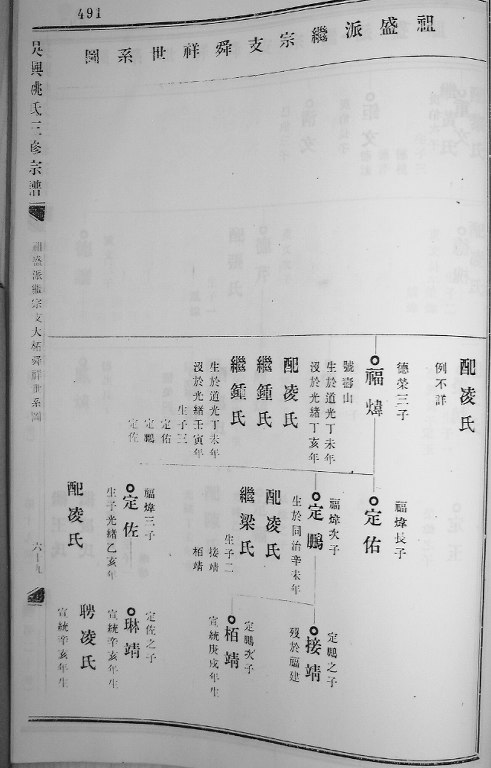 491
祖盛派繼宗支舜祥世系圖
吳興姚氏三修宗譜
祖盛派繼宗支大桥舜祥世系圖
六十九
配凌氏
例不詳
德榮三子
福煒
號壽山
生於道光丁未年
沒於光緒丁亥年
配凌氏
繼鍾氏
繼鍾氏
生於道光丁未年
沒於光緒壬寅年
生子三
定佑
定鵬
定佐
福煒長子
定佑
福煒次子
定鵬
生於同治辛未年
配凌氏
繼梁氏
生子二
接靖
栢靖
福煒三子
定佐
生于光緒乙亥年
配凌氏
定鵬之子
接靖
歿於福建
定鵬次子
栢靖
宣統庚戌年生
定佐之子
琳靖
宣統辛亥年生
聘凌氏
宣統辛亥年生